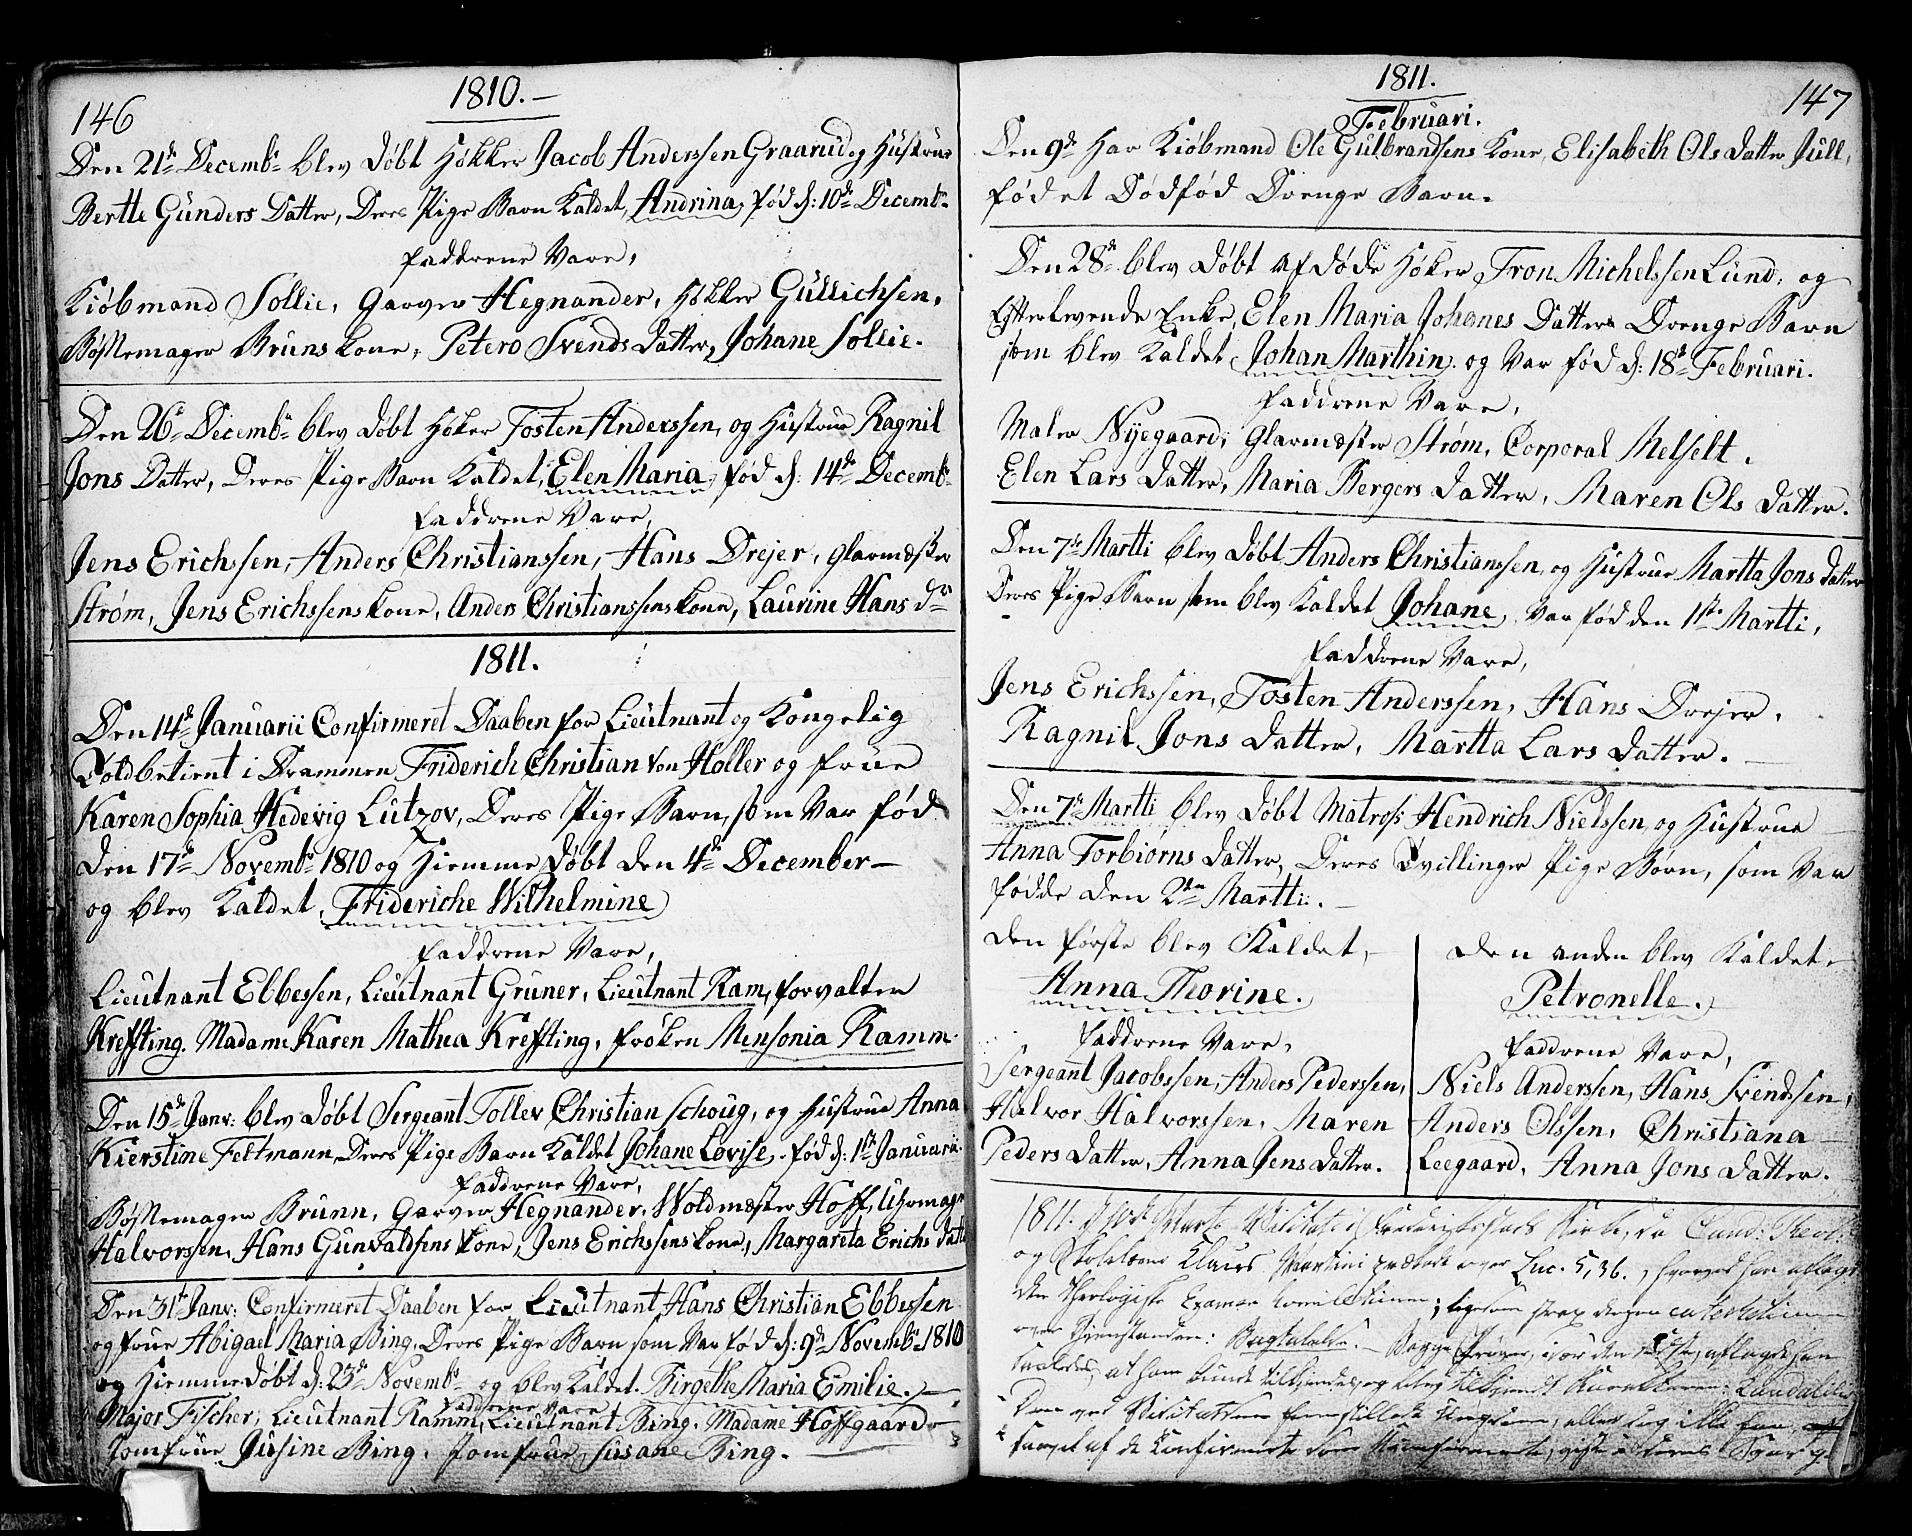 146
1810.
Den 21de Decembr blev døbt Høkker Jacob Anderssen Graarud og Hustrue
Bertte Gunders Datter, Deres Pige Barn Kaldet, Andrina, fød d: 10de Decembr
Faddrene Vare,
Kiøbmand Sollie, Garver Hegnander, Høkker Gullichsen,
Bøssemager Bruns Kone, Petero Svends Datter, Johane Sollie.
Den 26de Decembr blev døbt Høker Tosten Anderssen, og Hustrue Ragnil
Jons Datter, Deres Pige Barn Kaldet, Elen Maria, fød d: 14de Decembr
Faddrene Vare,
Jens Erichssen, Anders Christianssen, Hans Drejer, Glarmæster
Strøm, Jens Erichssens Kone, Anders Christianssens Kone, Laurine Hans dr
1811.
Den 14de Januarii Confirmeret Daaben for Lieutnant og Kongelig
Toldbetient i Drammen Friderich Christian von Holler og Frue
Karen Sophia Hedevig Lutzov, Deres Pige Barn, som Var fød
den 17de Novembr 1810 og Hiemme døbt den 4de December
og blev Kaldet, Frideriche Wilhelmine
Faddrene Vare,
Lieutnant Ebbessen, Lieutnant Gruner, Lieutnant Ram, Forvalter
Kreffting. Madame Karen Mathea Kreffting, Frøken Mensonia Ramm.
Den 15de Janv: blev døbt Sergeant Tollev Christian Schoug, og Hustrue Anna
Kierstine Feltmann, Deres Pige Barn Kaldet Johane Lovise, fød d: 1ste Januarii.
Faddrene Vare,
Bøssemager Brunn, Garver Hegnander, Woldmæster Hoff, Uhrmager
Halvorssen, Hans Gunvaldsens Kone, Jens Erichssens Kone, Margareta Erichs Datter
Den 31te Janv: Confirmeret Daaben for Lieutnant Hans Christian Ebbessen
og Frue Abigael Maria Bing, Deres Pige Barn som Var fød d: 9de Novembr 1810
og Hiemme døbt d: 23de Novembr og blev Kaldet. Birgethe Maria Emilie.
Faddrene Vare
Major Fischer, Lieutnant Ramm, Lieutnant Bing. Madame Hoffgaard
Jomfrue Jusine Bing, Jomfrue Susane Bing.
147
1811.
Februari.
Den 9de Har Kiøbmand Ole Gulbrandsens Kone, Elisabeth Ols Datter Jull,
fød et Dødfød Drenge Barn.
Den 28de blev døbt afdøde Høker Tron Michelssen Lund, og
Efterlevende Enke, Elen Maria Johanes Datters Drenge Barn
som blev Kaldet, Johan Marthin, og Var fød d: 18de Februari.
Faddrene Vare,
Maler Nyegaard, Glarmæster Strøm, Corporal Melselt.
Elen Lars Datter, Maria Bergers Datter, Maren Ols Datter.
Den 7de Martti blev døbt Anders Christianssen, og Hustrue Martta Jons Datter
Deres Pige Barn som blev Kaldet Johane, Var fød den 1ste Martti,
Faddrene Vare,
Jens Erichssen, Tosten Anderssen, Hans Drejer,
Ragnil Jons Datter, Martta Lars Datter.
Den 7de Martti blev døbt Matros: Hendrich Nielssen, og Hustrue
Anna Torbiorns Datter, Deres Tvillinger Pige Børn, som Var
fødde den 2den Martti.
den første blev Kaldet,
Anna Thorine.
Faddrene Vare,
Sergeant Jacobssen, Anders Pederssen,
Halvor Halvorssen, Maren
Peders Datter, Anna Jens Datter.
den anden blev Kaldet
Petronelle.
Faddrene Vare,
Niels Anderssen, Hans Svendsen,
Anders Olssen, Christiana
Leegaard, Anna Jons Datter.
1811. Visitats i Kirke, da Cand:
og Skolelærer Claus Martini prædikede over Luc. 5, 36.,
den theologiske Examen
over Gienstanden: Bagtalelse.